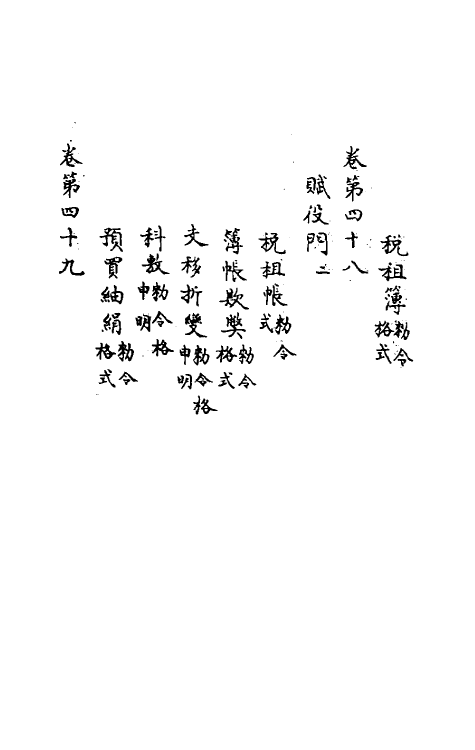 税租簿勑令格式
卷第四十八
賦役門二
税租帳勑令式
簿帳欺弊勑令格式
支移折變勑令格申明
科敷勑令格申明
預買紬絹勑令格式
卷第四十九